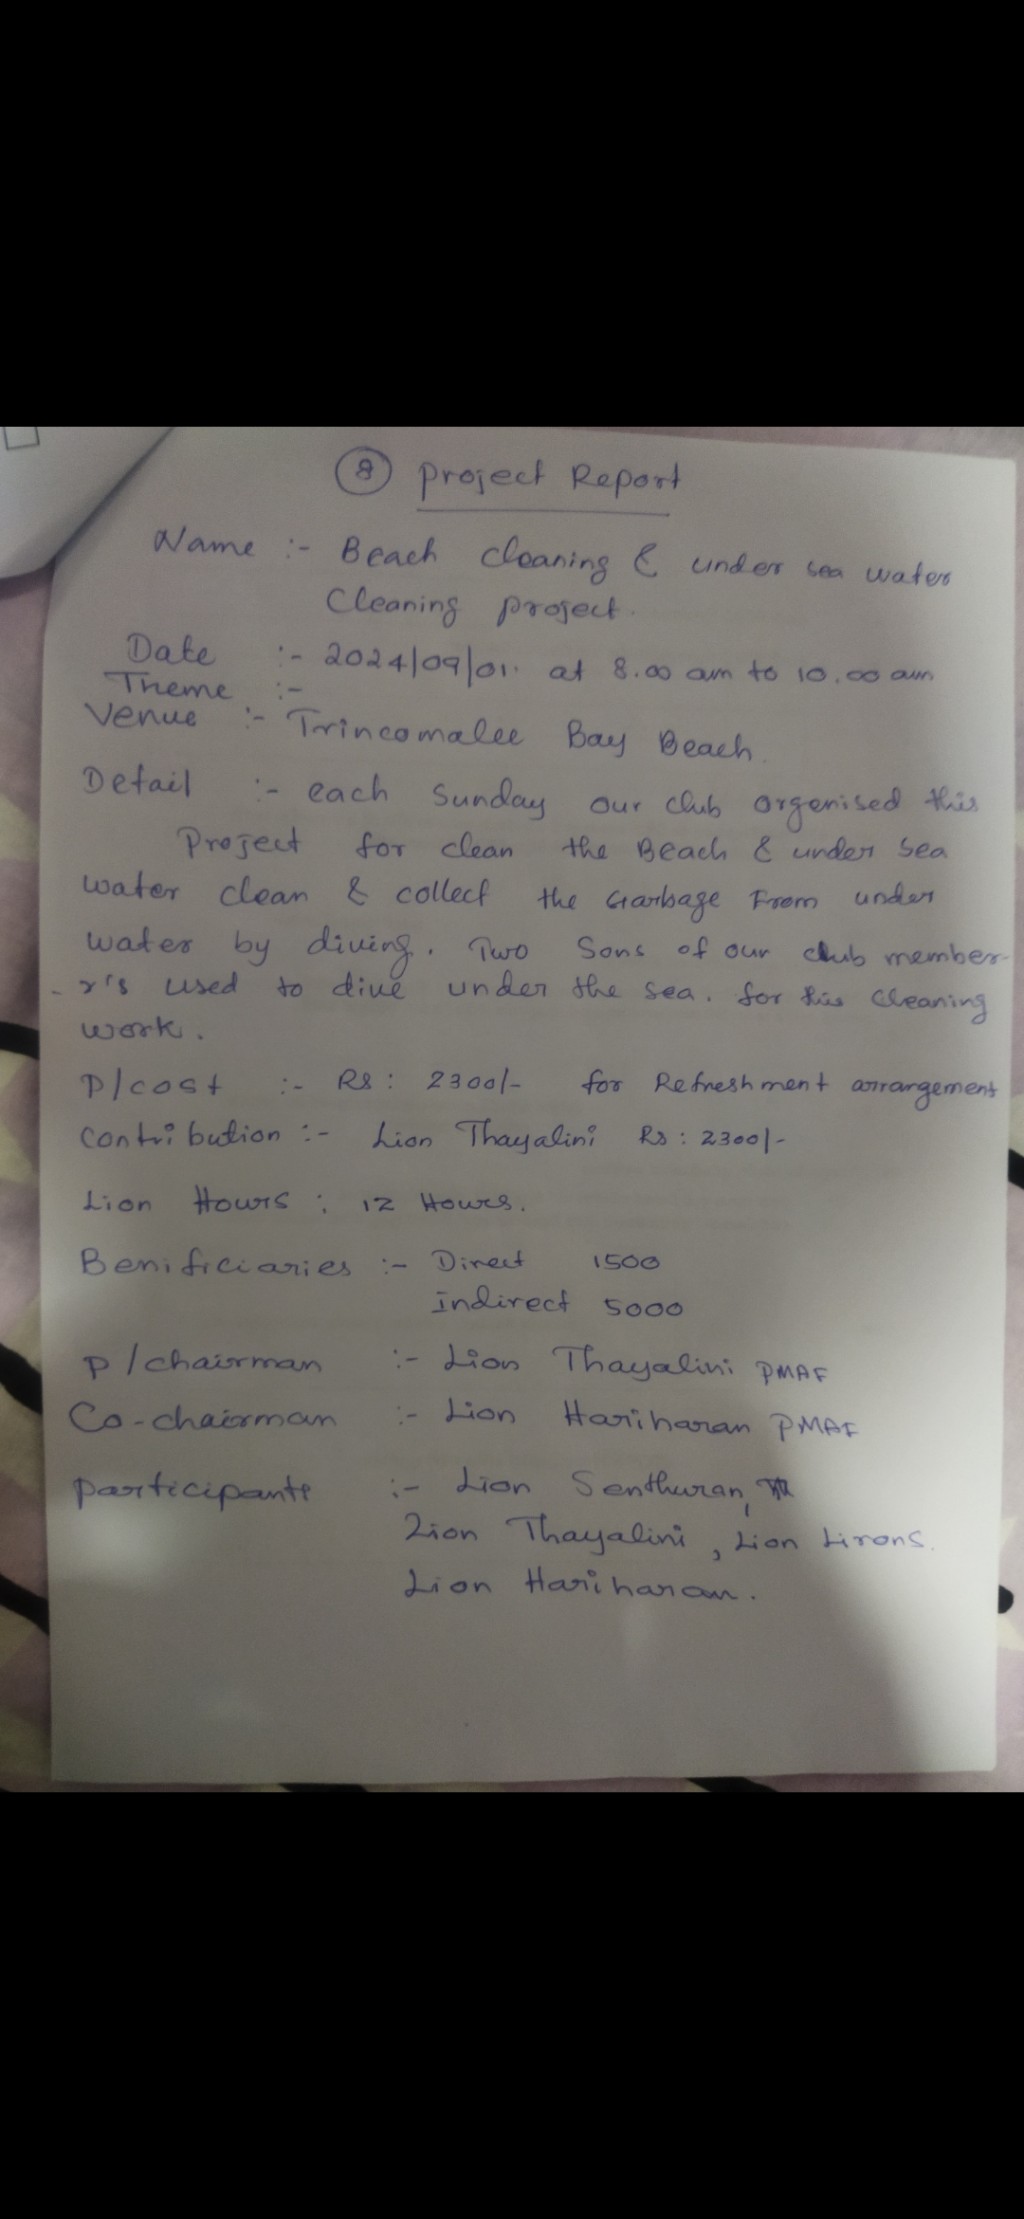 8 Project Report
Name :- Beach cleaning & under sea water
Cleaning project.
Date :- 2024/09/01. at 8.00 am to 10.00 am
Theme :-
Venue :- Trincomalee Bay Beach.
Detail :- each Sunday our club orgenised this
Project for clean the Beach & under sea
water clean & collect the Garbage From under
water by diving. Two Sons of our club member-
- r's used to dive under the sea. for this cleaning
work.
P/cost :- Rs: 2300/- for Refreshment arrangement
Contribution :- Lion Thayalini Rs: 2300/-
Lion Hours : 12 Hours.
Benificiaries :- Direct 1500
Indirect 5000
P/chairman :- Lion Thayalini PMAF
Co-chairman :- Lion Hariharan PMAF
participants :- Lion Senthuran,
Lion Thayalini, Lion Lirons.
Lion Hariharan.